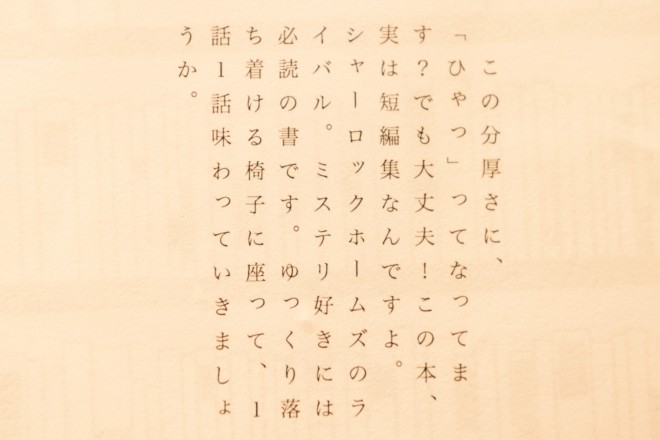 この分厚さに、
「ひゃっ」ってなってま
す？でも大丈夫！この本、
実は短編集なんですよ。
シャーロックホームズのラ
イバル。ミステリ好きには
必読の書です。ゆっくり落
ち着ける椅子に座って、1
話1話味わっていきましょ
うか。